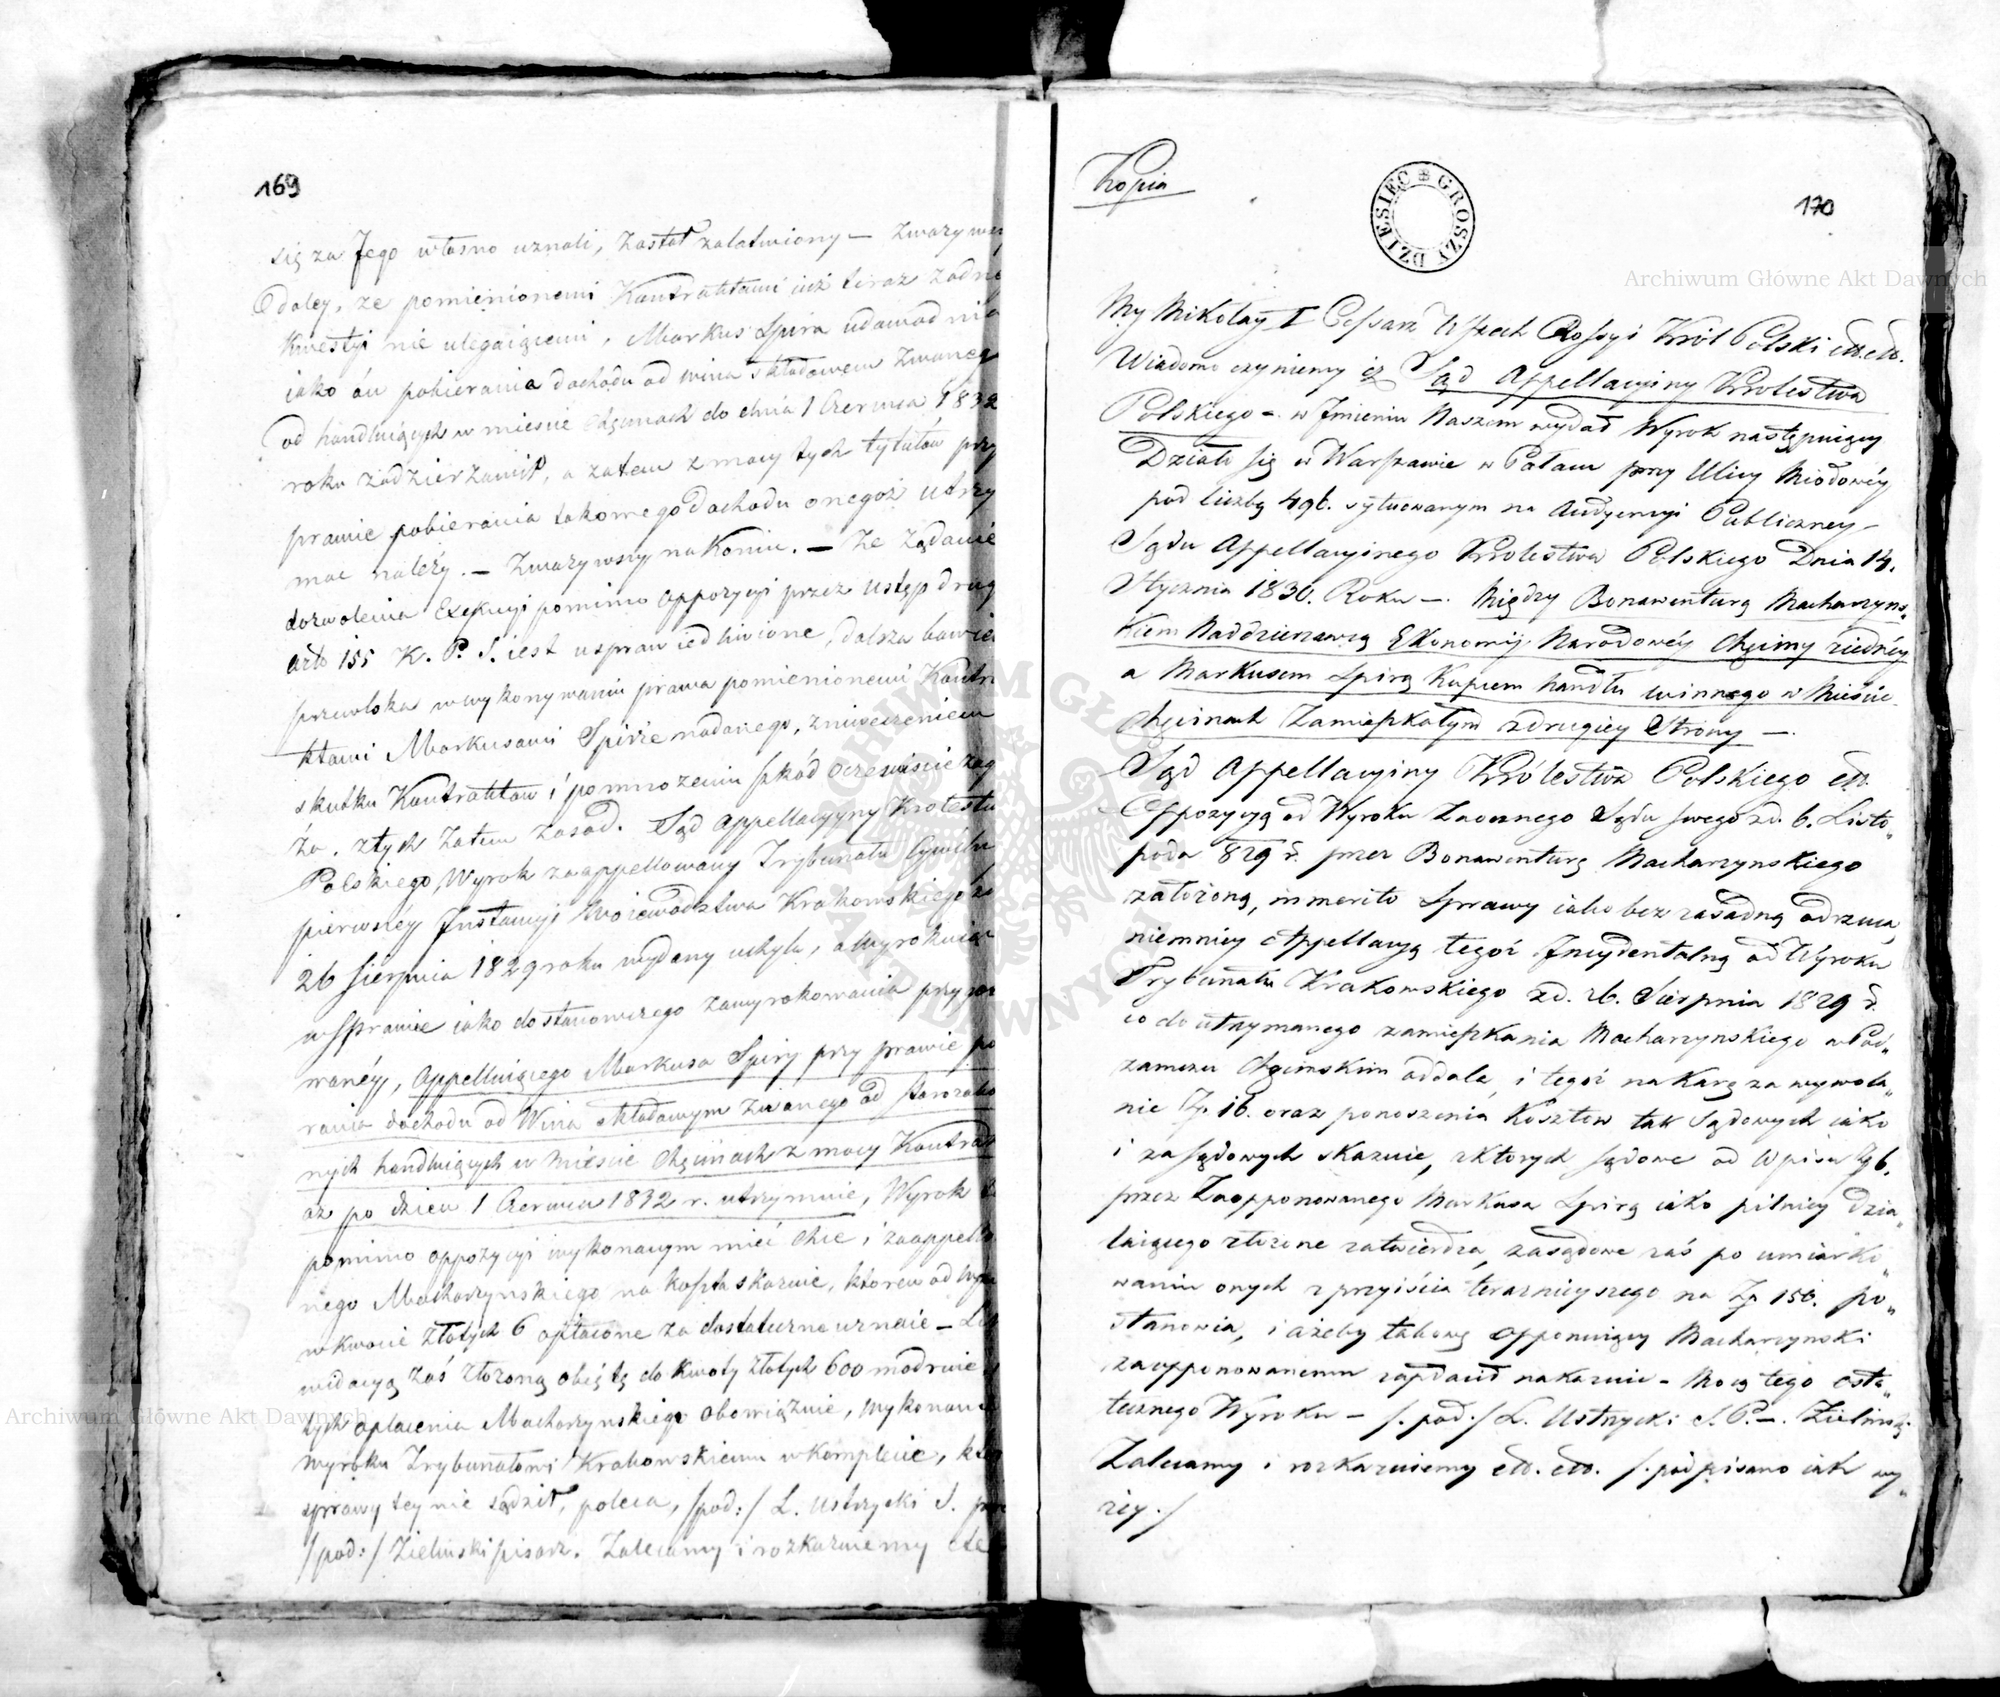 169
się za Jego własno uznali, został załatwiony — Zważywszy
daley, że pomienionemi Kontraktami już teraz żadney
kwestyi nie ulegaiącemi, Markus Spira udowadnia
jako ón pobierania dochodu od wina składowem zwanego
od handluiących w mieście Chęcinach do dnia 1 Czerwca 1832
roku zadzierżawił, a zatem z mocy tych tytułów przy
prawie pobierania takowego dochodu onegoż utrzy
mać należy. — Zważywszy nakoniec. — Że żądanie
dozwolenia Exekucyi pomimo oppozycyi przez ustęp drugi
arto 155 K. P. S. iest usprawiedliwione, dalsza bowiem
przewłoka w wykonywaniu prawa pomienionemi Kontra
ktami Markusowi Spirze nadanego, zniweczeniem
skutku Kontraktów i pomnożeniu szkód oczewiście zag
ża. Z tych zatem zasad. Sąd Appellacyyny Królestwa
Polskiego, Wyrok zaappellowany Trybunału Cywiln
pierwszéy Instancyi Woiewództwa Krakowskiego z
26 Sierpnia 1829 roku wydany uchyla, a wyrokuiąc
w Sprawie jako do stanowczego zawyrokowania przygoto
wanéy, Appelluiącego Markusa Spirę przy prawie pobie
rania dochodu od Wina składowym zwanego od starozako
nnych handluiących w Mieście Chęcinach z mocy Kontrak
aż po dzień 1 Czerwca 1832 r. utrzymuie, Wyrok te
pomimo oppozycyi wykonanym mieć chce i zaappello
nego Macharzynskiego na koszta skazuie, które od wpisu
w kwocie Złotych 6 opłacone za dostateczne uznaie — Lik
widacyą zaś złożoną obiętą do kwoty Złotych 600 modruie
tych opłacenia Macharzynskiego obowiązuie, wykonanie
wyroku Trybunałowi Krakowskiemu w komplecie, który
sprawy tey nie sądził, poleca, /pod:/ L. Ustrzycki S. pre
/pod:/ Zieliński pisarz. Zalecamy i rozkazuiemy etc
Kopia
DZIESIĘC GROSZY
170
My Mikołay I Cessarz Wszech Rossyi Król Polski etc. etc.
Wiadomo czyniemy iż Sąd Appellacyiny Królestwa
Polskiego — w Jmieniu Naszem wydał Wyrok następuiący
Działo się w Warszawie w Pałacu przy Ulicy Miodowéy
pod liczbą 496. sytuowanym na Audyencyi Publiczney —
Sądu Appellacyinego Królestwa Polskiego Dnia 14.
Stycznia 1830. Roku —. Między Bonawenturą Macharzyns„
kiem Naddzierzawcą Ekonomij Narodowéy Chęciny ziednéy
a Markusem Spirą Kupcem handlu winnego w Mieście
Chęcinach Zamieszkałym zdrugiey Strony —.
Sąd Appellacyiny Królestwa Polskiego etc.
Oppozycyą od Wyroku Zaocznego Sądu swego z d. 6. Listo„
pada 829 r. przez Bonawenturę Macharzynskiego
założoną, in merito Sprawy iako bez zasadną odrzuca,
niemniey Appellacyą tegoż Jncydentalną od Wyroku
Trybunału Krakowskiego z d. 26. Sierpnia 1829 r.
co do utrzymanego zamieszkania Macharzynskiego w Pod„
zamczu Chęcinskim oddala, i tegoż na karę za wywoła„
nie Zp. 16. oraz ponoszenia Kosztów tak Sądowych iako
i zasądowych skazuie, z których sądowe od Wpisu Zp 6.
przez Zaopponowanego Markusa Spirę iako pilniey dzia„
łaiącego złożone zatwierdza, zasądowe zaś po umiarko„
waniu onych z przyiścia teraznieyszego na Zp 150. po„
stanowia, i ażeby takowę opponuiący Macharzynski
zaopponowanemu zapłacił nakazuie — Mocą tego osta„
tecznego Wyroku — /. pod:/ L. Ustrzycki S. P. —. Zielinski.
Zalecamy i rozkazuiemy etc. etc. /. podpisano iak wy„
żey ./
Archiwum Główne Akt Dawnych
Archiwum Główne Akt Dawnych
ARCHIWUM GŁÓWNE AKT DAWNYCH